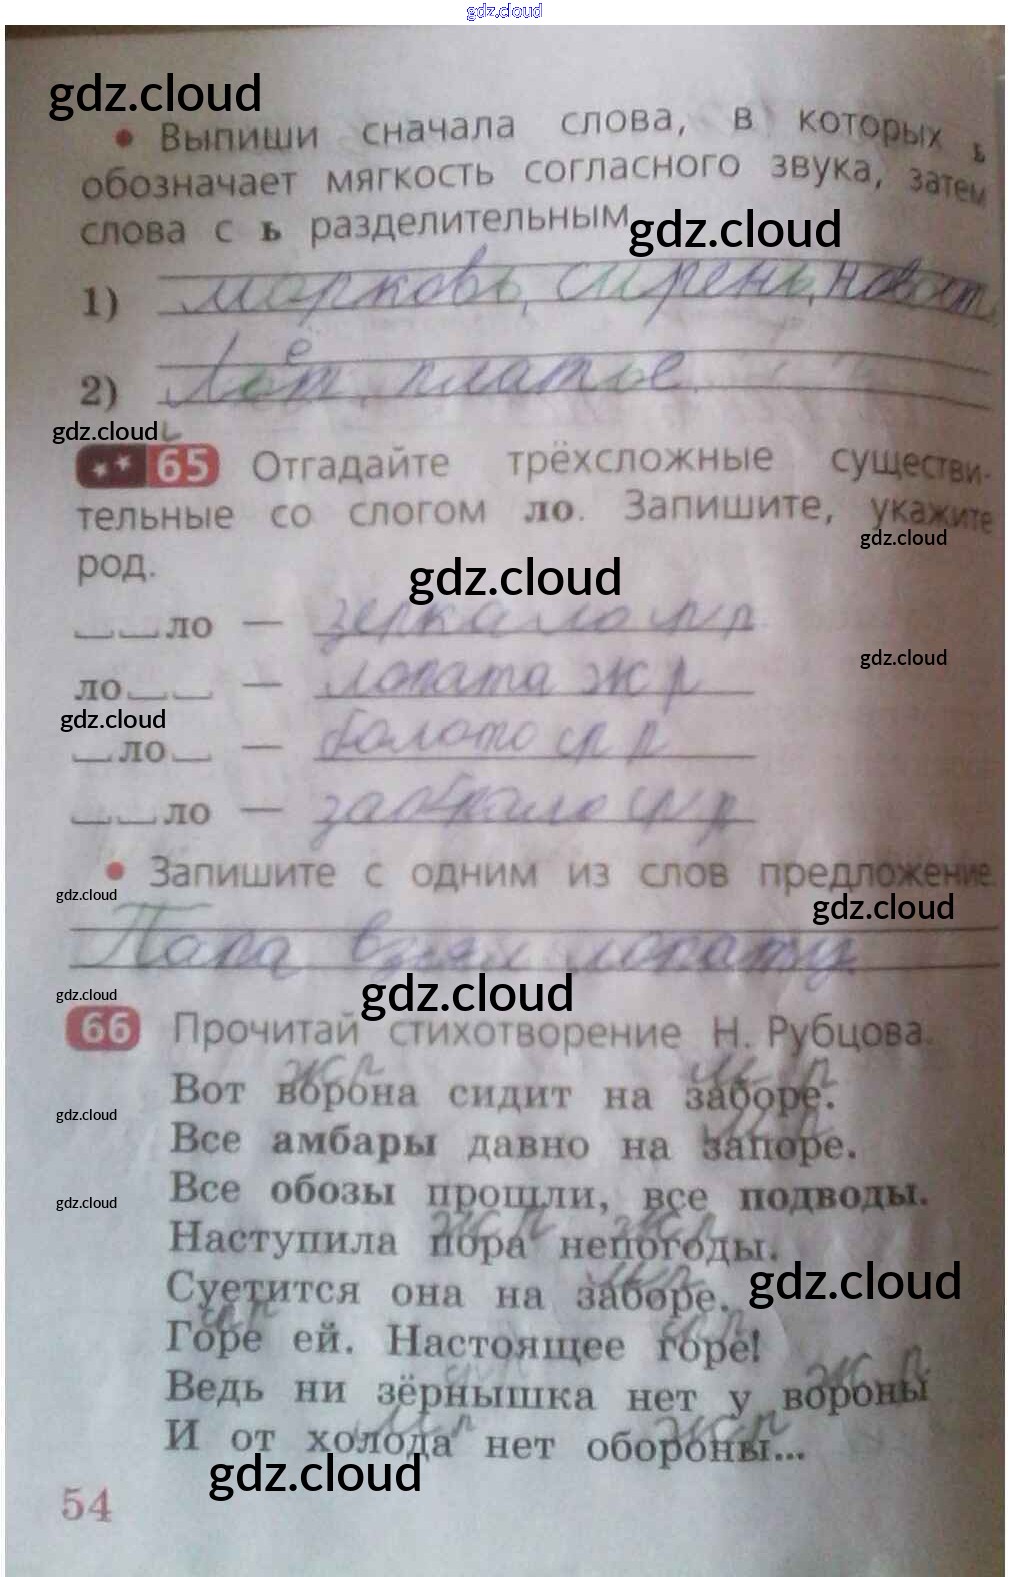 gdz.cloud
gdz.cloud
• Выпиши сначала слова, в которых ь
обозначает мягкость согласного звука, затем
слова с ь разделительным.
gdz.cloud
1) морковь, сирень,
2) Льёт, платье.
gdz.cloud
65 Отгадайте трёхсложные существи-
тельные со слогом ло. Запишите, укажите
gdz.cloud
род.
gdz.cloud
ло — зеркало ср р
gdz.cloud
ло — лопата ж р
gdz.cloud
ло — болото ср р
ло — забрало ср р
• Запишите с одним из слов предложение.
gdz.cloud
gdz.cloud
Папа взял лопату
gdz.cloud
gdz.cloud
66 Прочитай стихотворение Н. Рубцова.
ж р м р
Вот ворона сидит на заборе.
gdz.cloud
м р
Все амбары давно на запоре.
Все обозы прошли, все подводы.
gdz.cloud
ж р ж р
Наступила пора непогоды.
gdz.cloud
м р
Суетится она на заборе.
ср р ср р
Горе ей. Настоящее горе!
ср р ж р
Ведь ни зёрнышка нет у вороны
м р ж р
И от холода нет обороны...
gdz.cloud
54